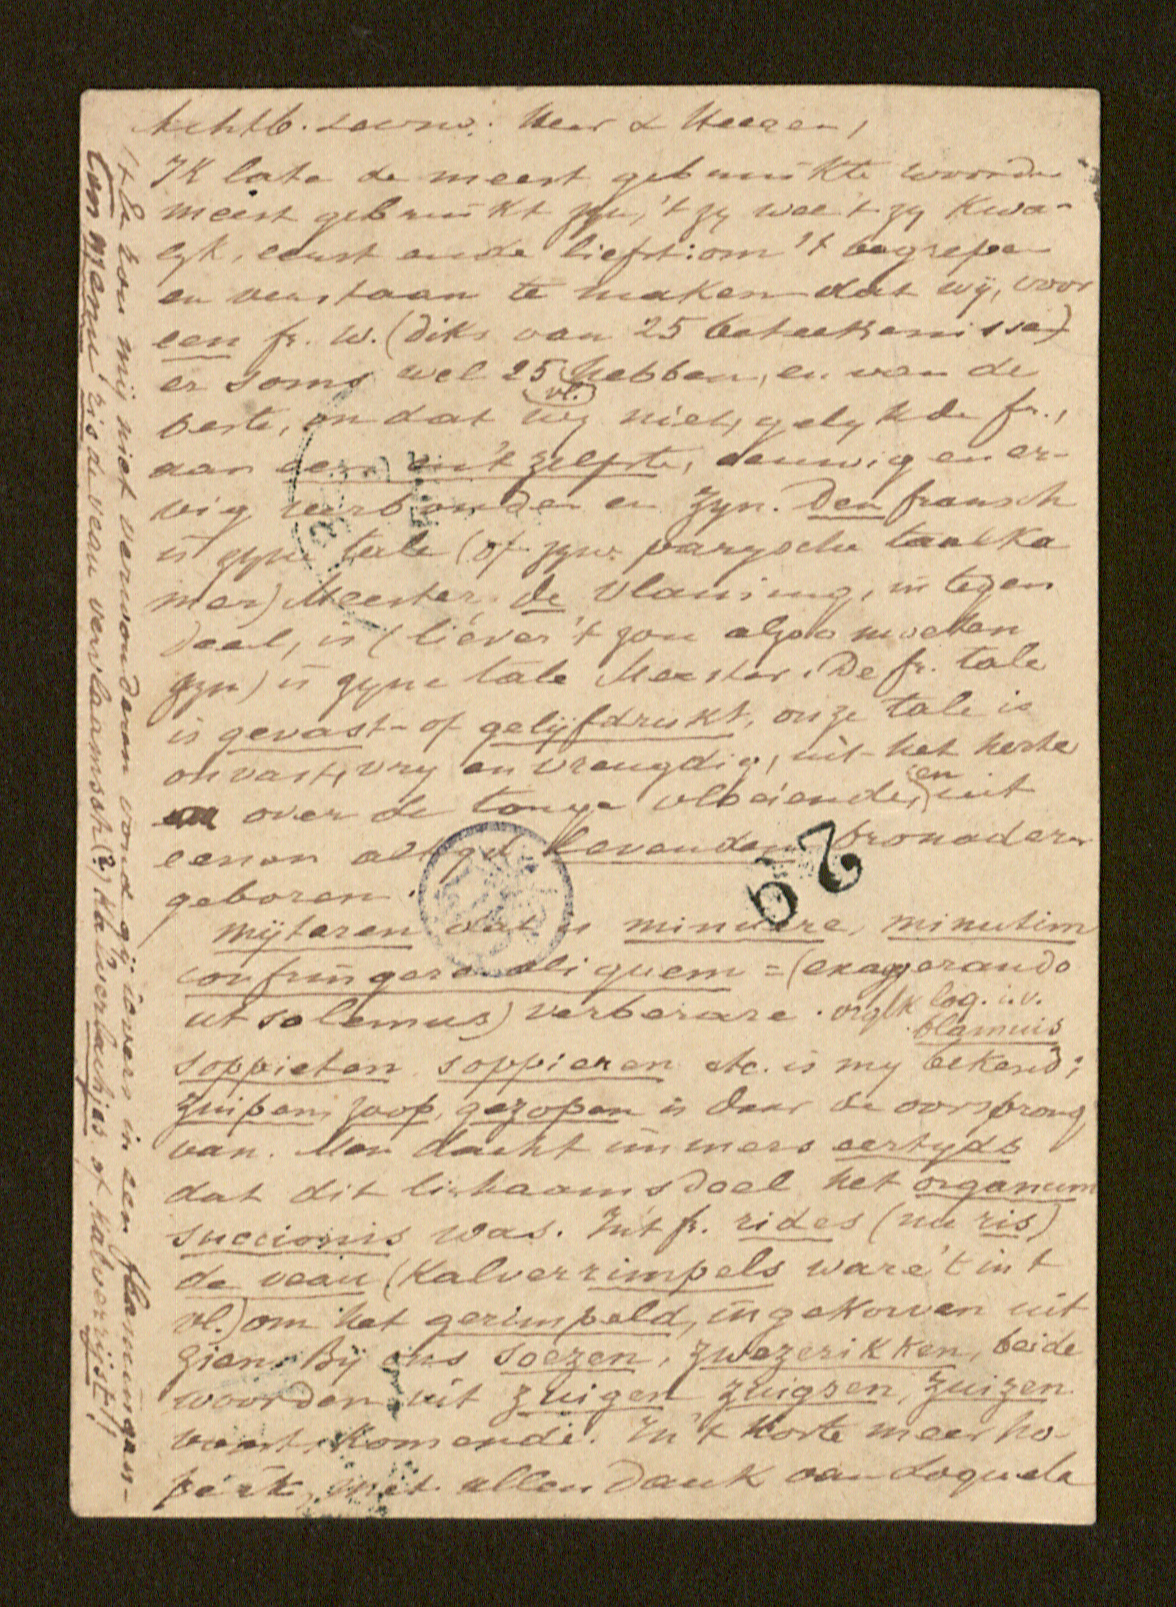 Achtb. Heer &
Ik late de meest gebruikte woorden
meest gebruikt zyn, 't zy wee 't zy kwa-
lyk, eerst ende liefst: om 't begrepen
en verstaan te maken dat wy, voor
een fr. w. (diks van 25 beteekenissen)
er soms wel 25 hebben, en van de
beste, omdat wy vl. niet, gelyk de fr.,
aan een en 't zelfste, eeuwig en er-
vig verbonden en zyn. Den fransch
is zyne tale (of zyne parysche taalka
mer) Meester. De Vlaming, in tegen
deel, is (liever 't zou alzoo moeten
zyn) is zyne tale Meester. De fr. tale
is gevast- of gelijfdrukt, onze tale is
onvast, vry en vreugdig, uit het herte
over de tonge vloeiende, en uit
eenen altyd levenden bronader
geboren.
mijteren dat is minuere, minutim
confringere aliquem = (exaggerando
ut solemus) verberare. vrglk log. i.v.
blamuis
soppieten soppieren etc. is my bekend;
zuipen, zoop, gezopen is daar de oorsprong
van. Men dacht immers eertyds
dat dit lichaamsdeel het organum
succionis was. In 't fr. rides (nu ris)
de veau (Kalverrimpels ware 't in 't
vl.) om het gerimpeld, ingekorven uit
zien. Bij ons soezen, zwezerikken, beide
woorden uit zuigen zuigsen, zuizen
komende. In 't korte meer ho-
pe ik, met allen dank van Loquela
'k En zou mij niet verwonderen vond gij ievers in een flamingan-
ten menu 'ris de veau vervlaamscht (?) Kalverlachjes of Kalverrijst!!
29